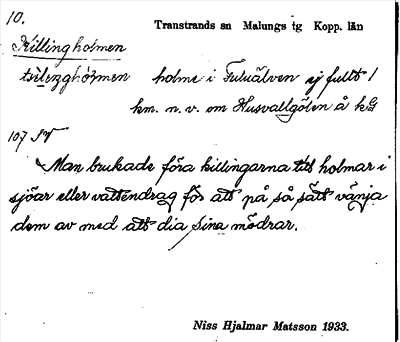 10.
Transtrands sn Malungs tg Kopp. län
Killingholmen
holme i Fuluälven ej fullt 1
km. n. v. om Husvallgölen å kG
107 SV
Man brukade föra killingarna till holmar i
sjöar eller vattendrag för att på så sätt vänja
dem av med att dia sina mödrar.
Niss Hjalmar Matsson 1933.